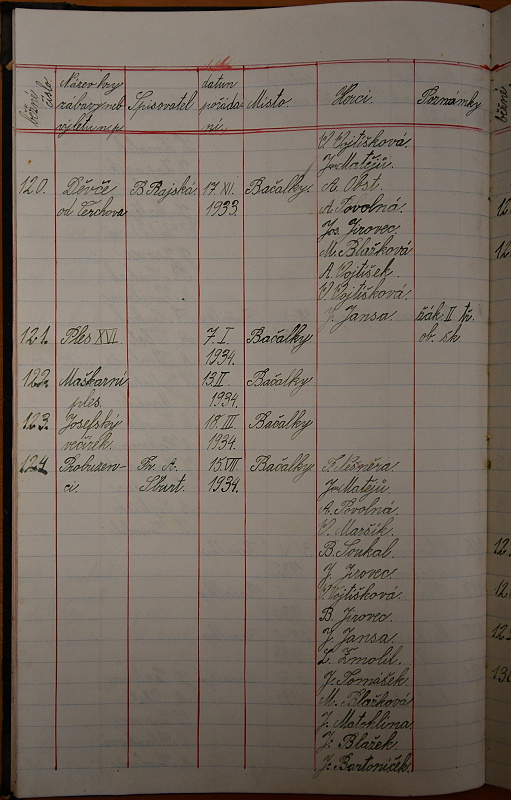 běžné číslo
Název hry zábavy neb výletu n. p.
Spisovatel
datum pořádání
Místo
Herci
Poznámky
V. Vojtíšková.
J. Matějů.
120. Děvče B. Rajská 17. XI. Bačalky. A. Obst.
od Čerchova 1933. A. Povolná.
Jos. Jirovec.
M. Blažková
A. Vojtíšek.
V. Vojtíšková.
J. Jansa. žák II tř.
121. Ples XVI. 7. I. Bačalky ob. šk.
1934.
122. Maškarní 13. II. Bačalky
ples 1934.
123. Josefský 18. III. Bačalky
večírek. 1934.
124. Probuzen- Fr. A. 15. VII. Bačalky.
ci. 1934. J. Matějů.
A. Povolná.
V. Maršík.
B. Soukal.
J. Jirovec.
V. Vojtíšková.
B. Jirovec.
J. Jansa.
L. Zmolil.
J. Tomášek.
M. Blažková
J. Matoklina.
J. Blažek.
J. Bartoníček.